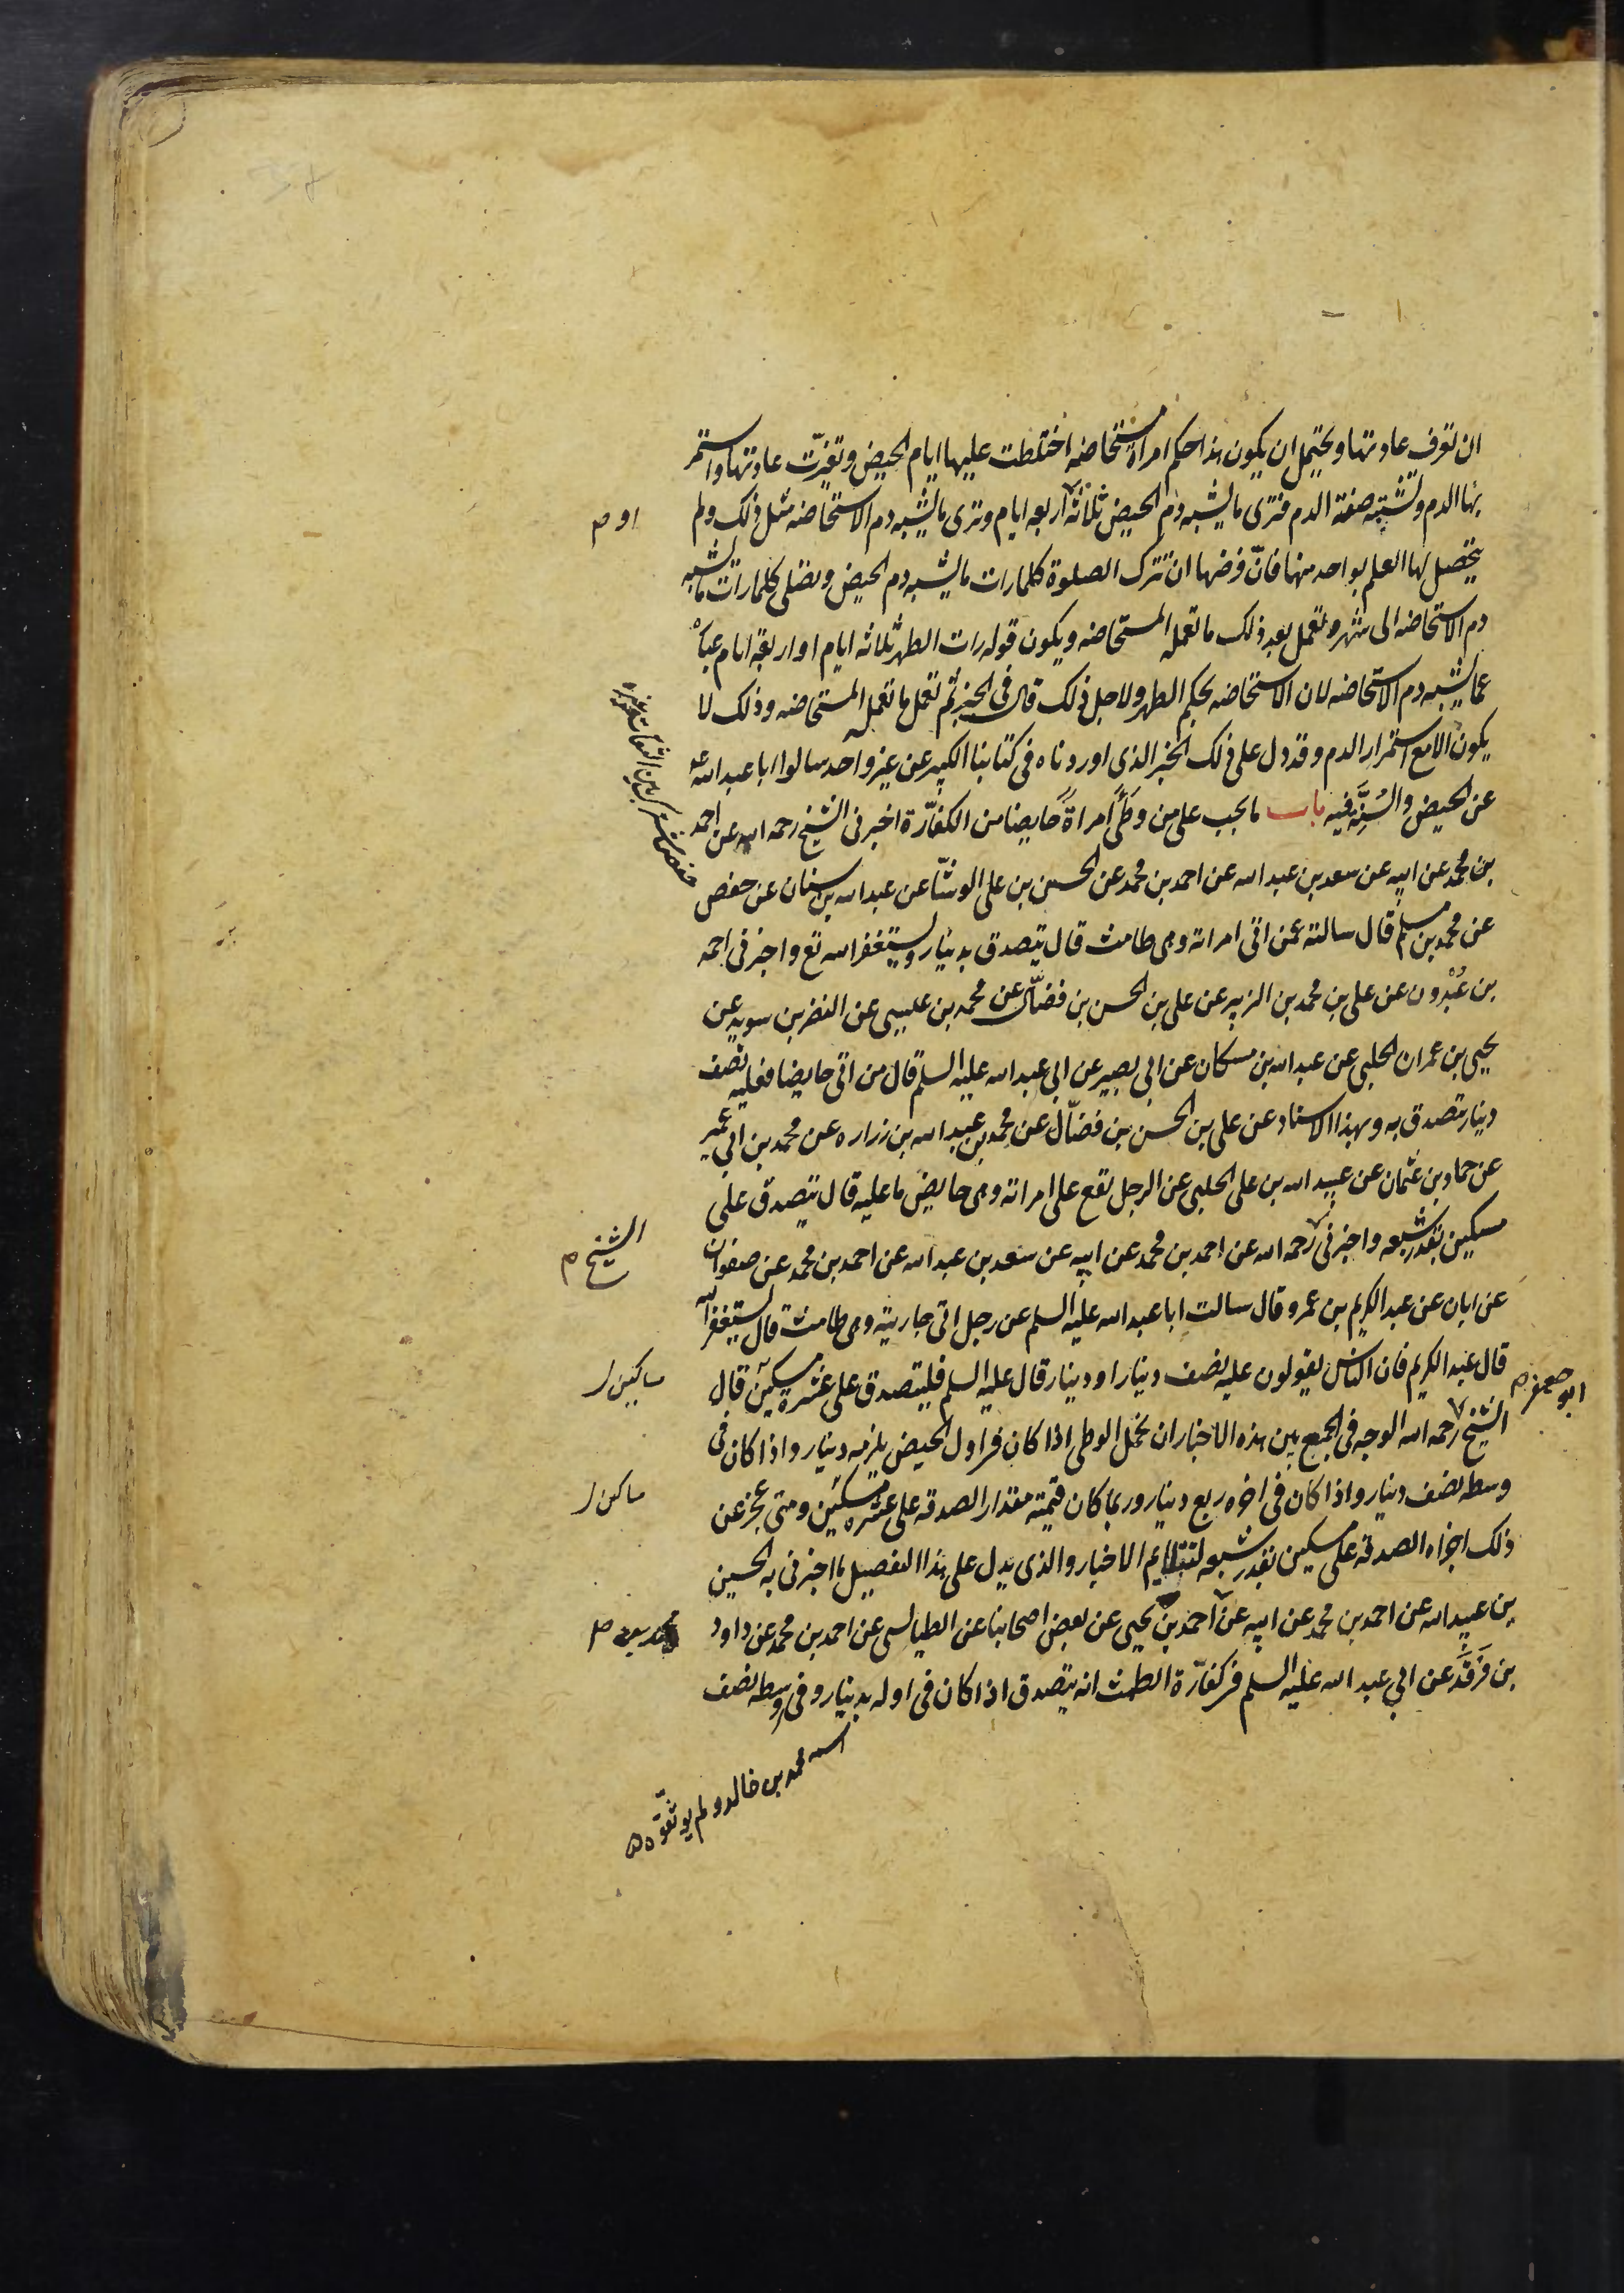 ان تعرف عادتها ويحتمل ان يكون هذا حكم امراة مستحاضه اختلطت عليها ايام الحيض وتغيّرت عادتها واستمر
بها الدم وتشتبه صفة الدم فترى ما يشبه دم الحيض ثلاثة اربعه ايام وترى ما يشبه دم الاستحاضه مثل ذلك ولم
او م
يتحصل لها العلم بواحد منها فانّ فرضها ان تترك الصلوة كلما رات ما يشبه دم الحيض وتصلى كلما رات ما يشبه
دم الاستحاضه الى شهر وتعمل بعد ذلك ما تعمله المستحاضه ويكون قوله رات الطهر ثلاثه ايام او اربعة ايام عبارة
عما يشبه دم الاستحاضه لان الاستحاضه بحكم الطهر ولاجل ذلك قال فى الخبر ثم تعمل ما تعمل المستحاضه وذلك لا
يكون الا مع استمرار الدم وقد دل على ذلك الخبر الذى اوردناه فى كتابنا الكبير عن غير واحد سالوا ابا عبد الله ع
عن الحيض والسُنّة فيه باب ما يجب على من وَطَى امراةً حايضا من الكفّارة اخبرنى الشيخ رحمه الله عن احمد
بن محمد عن ابيه عن سعد بن عبد الله عن احمد بن محمد عن الحسن بن على الوشّا عن عبد الله بن سنان عن حفص
حفص مشترك بين الثقات وغيره
عن محمد بن مسلم قال سالته عمن اتى امراته وهى طامث قال يتصدق بدينار ويستغفر الله تع واخبرنى احمد
بن عُبْدون عن على بن محمد بن الزبير عن على بن الحسن بن فضّال عن محمد بن عيسى عن النضر بن سويد عن
يحيى بن عمران الحلبى عن عبد الله بن مسكان عن ابى بصير عن ابى عبد الله عليه السلم قال من اتى حايضا فعليه نصف
دينار يتصدق به وبهذا الاسناد عن على بن الحسن بن فضّال عن محمد بن عبد الله بن زراره عن محمد بن ابى عمير
عن حماد بن عثمان عن عبيد الله بن على الحلبى عن الرجل يقع على امراته وهى حايض ما عليه قال يتصدق على
مسكين بقدر شبعه واخبرنى رحمه الله عن احمد بن محمد عن ابيه عن سعد بن عبد الله عن احمد بن محمد عن صفوان
الشيخ م
عن ابان عن عبد الكريم بن عمرو قال سالت ابا عبد الله عليه السلم عن رجل اتى جاريته وهى طامث قال يستغفر الله
قال عبد الكريم فان الناس يقولون عليه نصف دينار او دينار قال عليه السلم فليتصدق على عشرة مسكين قال
مساكين ل
ابو جعفر م
الشيخ رحمه الله الوجه فى الجمع بين هذه الاخبار ان نحمل الوطى اذا كان فى اول الحيض يلزمه دينار واذا كان فى
وسطه نصف دينار واذا كان فى اخره ربع دينار وربما كان قيمته مقدار الصدقه على عشره مسكين ومتى عجز عن
مساكين ل
ذلك اجزاه الصدقه على مسكين بقدر شبعه لتتلايم الاخبار والذى يدل على هذا التفصيل ما اخبرنى به الحسين
بن عبيد الله عن احمد بن محمد عن ابيه عن احمد بن يحيى عن بعض اصحابنا عن الطيالسى عن احمد بن محمد عن داود
محمد بن
بن فَرقَد عن ابى عبد الله عليه السلم فى كفّارة الطمث انه يتصدق اذا كان فى اوله بدينار وفى وسطه نصف
اسمه محمد بن خالد ولم يوثقوه